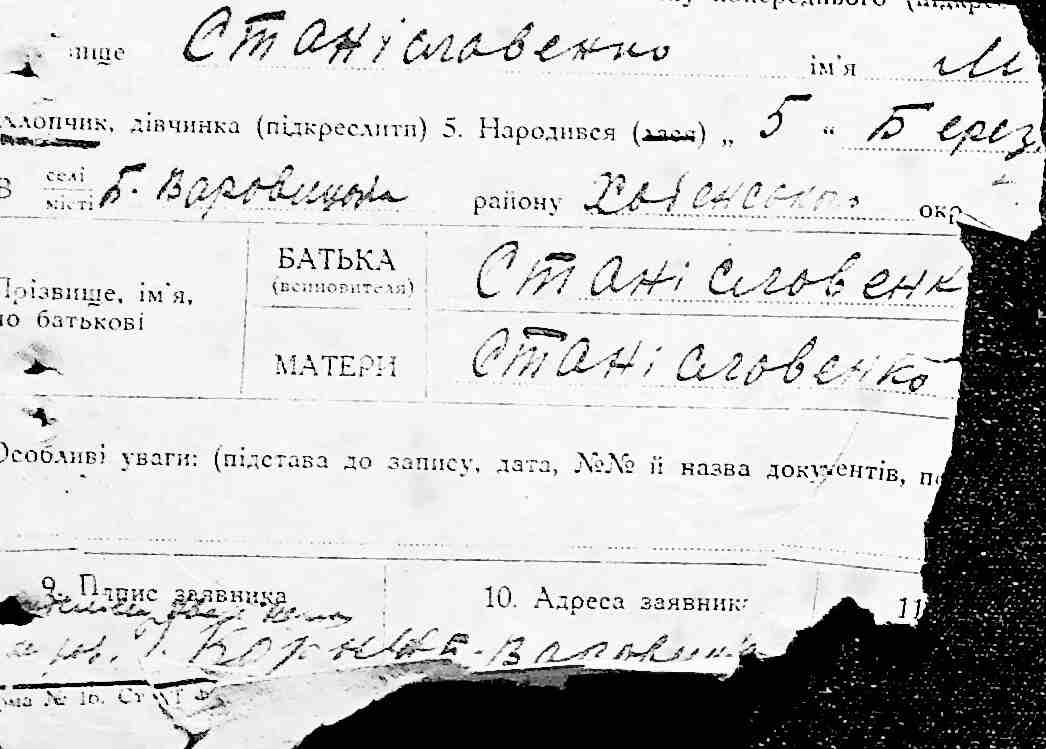 попереднього (підкре
вище Станіславенко ім'я М
хлопчик, дівчинка (підкреслити) 5. Народився (лася) „ 5 “ Берез
В селі
місті Б. Варовицька району Хабенсько окр
Прізвище, ім'я,
по батькові
БАТЬКА
(всиновителя)
Станіславенк
МАТЕРИ
Станіславенко
Особливі уваги: (підстава до запису, дата, №№ й назва документів, по
9. Підпис заявника 10. Адреса заявник 11
Б. Варовиця
рма № 16. Ст